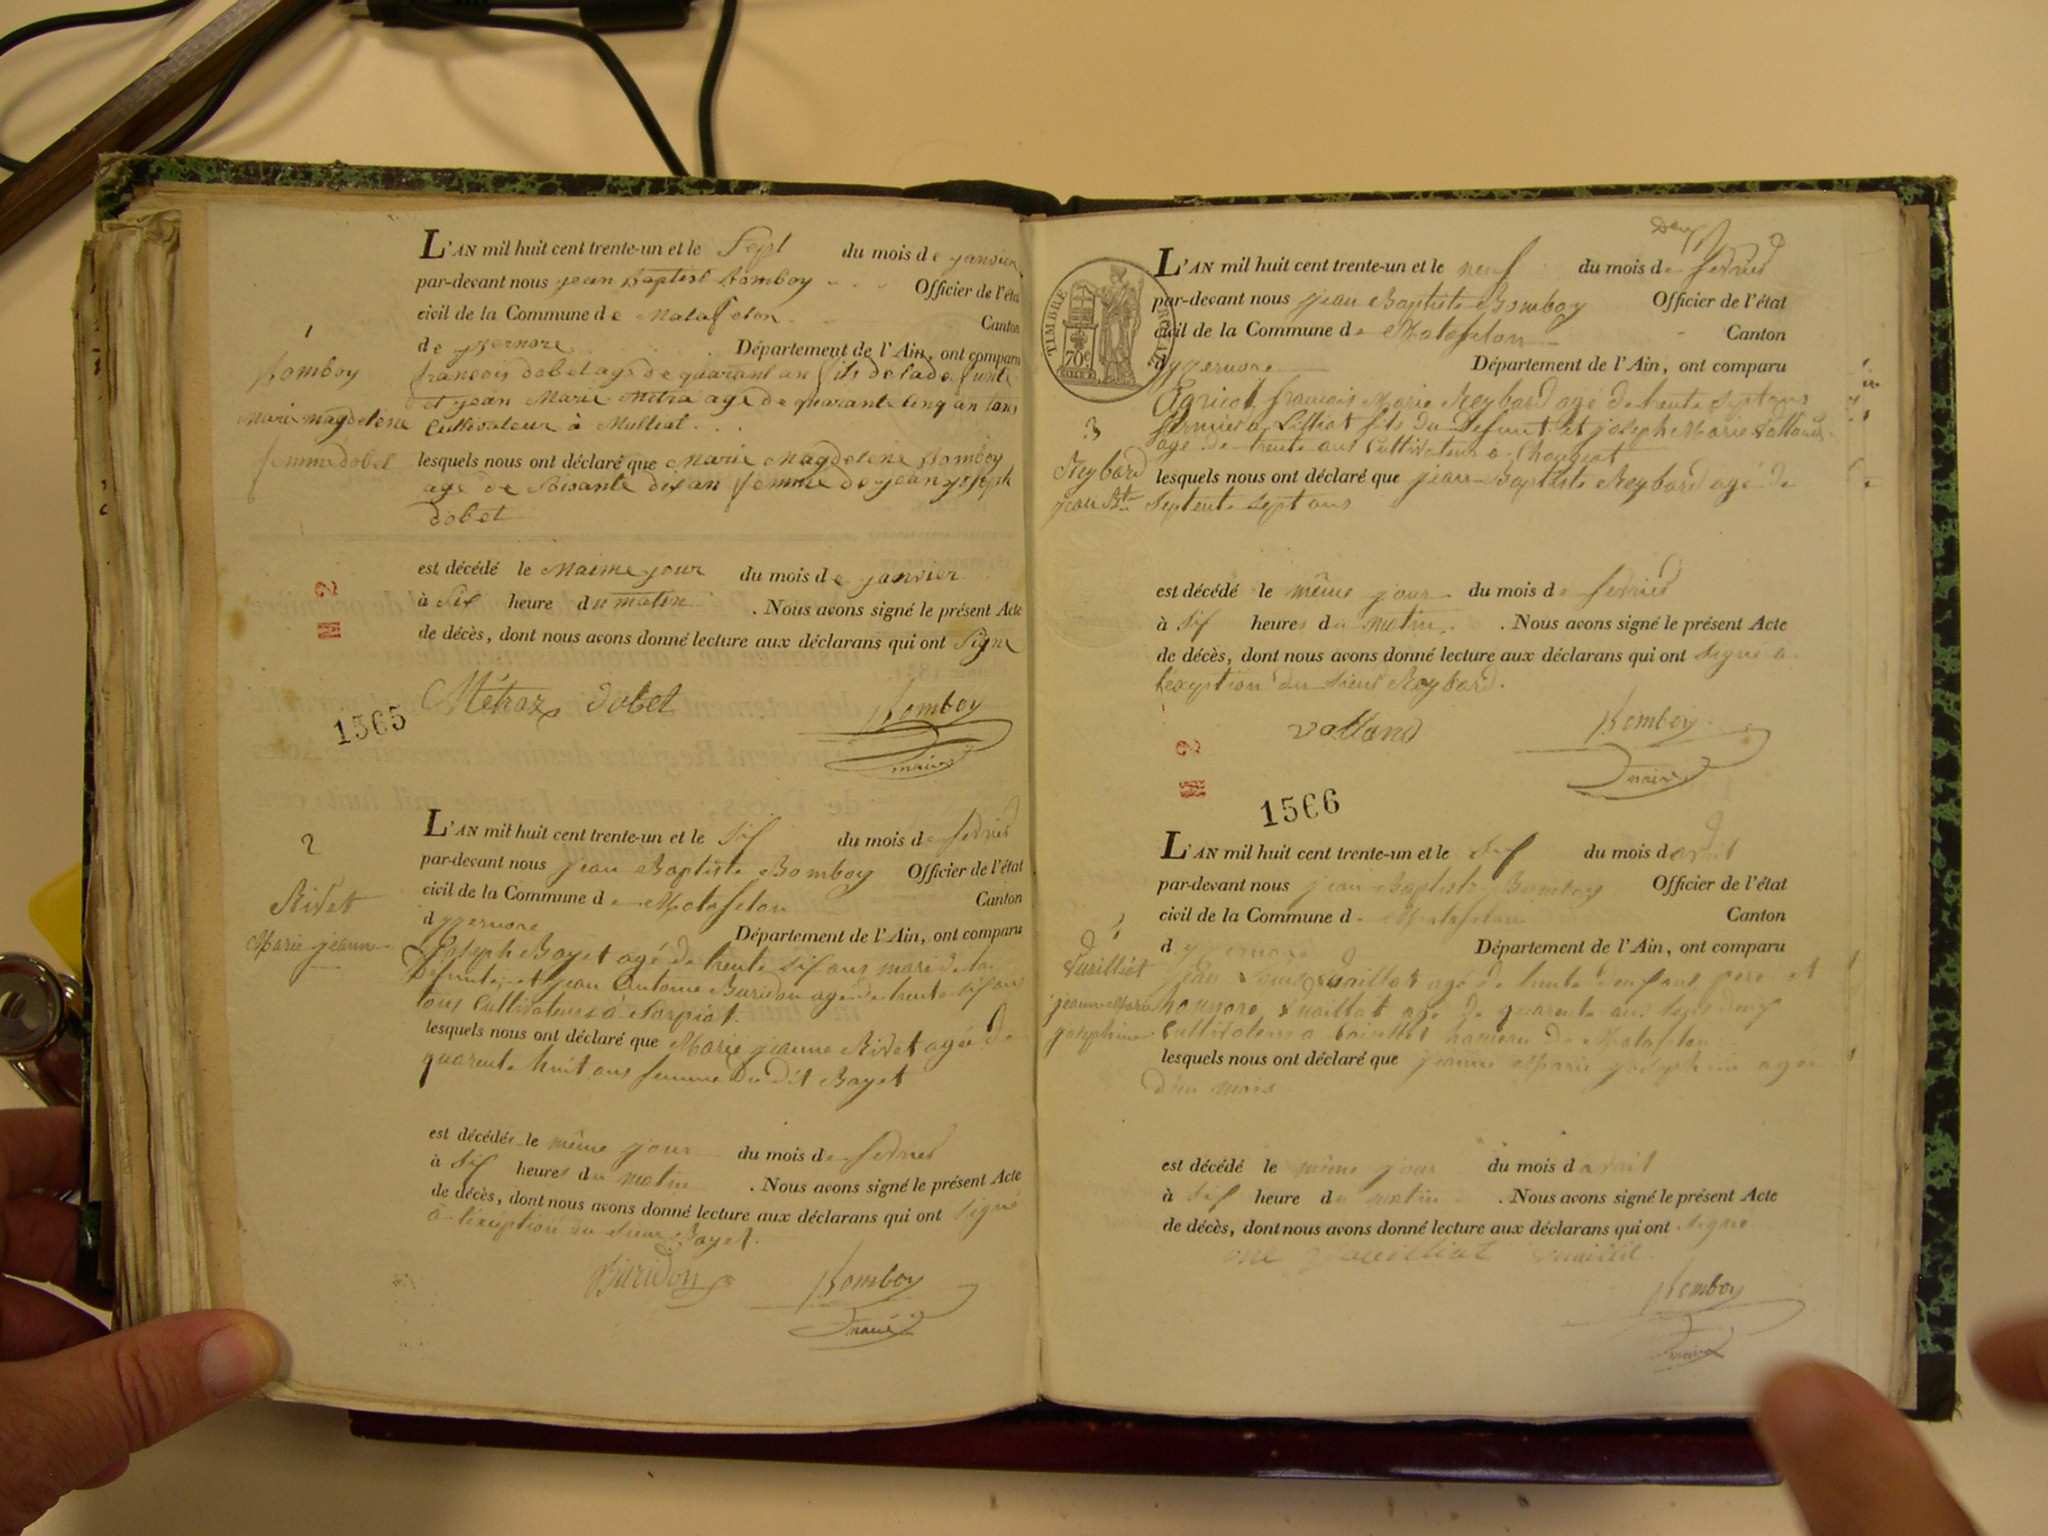 L'AN mil huit cent trente-un et le Sept du mois de janvier
par-devant nous jean Baptist Bomboy Officier de l'état
civil de la Commune de Matafelon Canton
de yzernore Département de l'Ain, ont comparu
françois dobet age de quarant an fils de lade funte
et jean Marie Metra age de quarante Cinq an tous
Cultivateur à Mulliat
1
Bomboy
Marie Magdeleine
femme dobet
lesquels nous ont déclaré que Marie Magdeleine Bomboy
age de Soisante dix an femme de jean joseph
dobet
est décédé le Maime jour du mois de janvier
à Six heure du matin . Nous avons signé le présent Acte
de décès, dont nous avons donné lecture aux déclarans qui ont Signe
Métraz dobet Bomboy
maire
1365
2
Rivet
Marie jeanne
L'AN mil huit cent trente-un et le Six du mois de fevrier
par-devant nous jean Baptiste Bomboy Officier de l'état
civil de la Commune de Matafelon Canton
d yzernore Département de l'Ain, ont comparu
Joseph Bayet agé de trente six ans mari de la
defunte, et jean Antoine Buridon age de trente six ans
tous Cultivateurs à Corpiat.
lesquels nous ont déclaré que Marie jeanne Rivet agée de
quarente huit ans femme du dit Bayet
est décédée le même jour du mois de fevrier
à Six heures du matin . Nous avons signé le présent Acte
de décès, dont nous avons donné lecture aux déclarans qui ont signé
à l'exeption du sieur Bayet.
Buridon Bomboy
maire
Deux
TIMBRE ROYAL
70c
L'AN mil huit cent trente-un et le neuf du mois de fevrier
par-devant nous jean Baptiste Bomboy Officier de l'état
civil de la Commune de Matafelon Canton
d yzernore Département de l'Ain, ont comparu
françois Marie Reybard agé de trente sept ans
fils du defunt et joseph Marie Valland
agé de trente ans Cultivateur a Chougeat
3
Reybard
jean Bte
lesquels nous ont déclaré que jean Baptiste Reybard agé de
Septente sept ans
est décédé le même jour du mois de fevrier
à Six heures du matin . Nous avons signé le présent Acte
de décès, dont nous avons donné lecture aux déclarans qui ont signé a
lexeption du sieur Reybard.
valland Bomboy
maire
1566
L'AN mil huit cent trente-un et le Six du mois d avril
par-devant nous jean Baptiste Bomboy Officier de l'état
civil de la Commune de Matafelon Canton
d yzernore Département de l'Ain, ont comparu
Vuilliot
jeanne Marie
josephine
agé de trente ans pere et
agé de quarente ans tous deux
Cultivateurs a hameau de Matafelon
lesquels nous ont déclaré que jeanne Marie josephine agée
d'un mois
est décédé le même jour du mois d avril
à Six heure du matin . Nous avons signé le présent Acte
de décès, dont nous avons donné lecture aux déclarans qui ont signé
Bomboy
maire